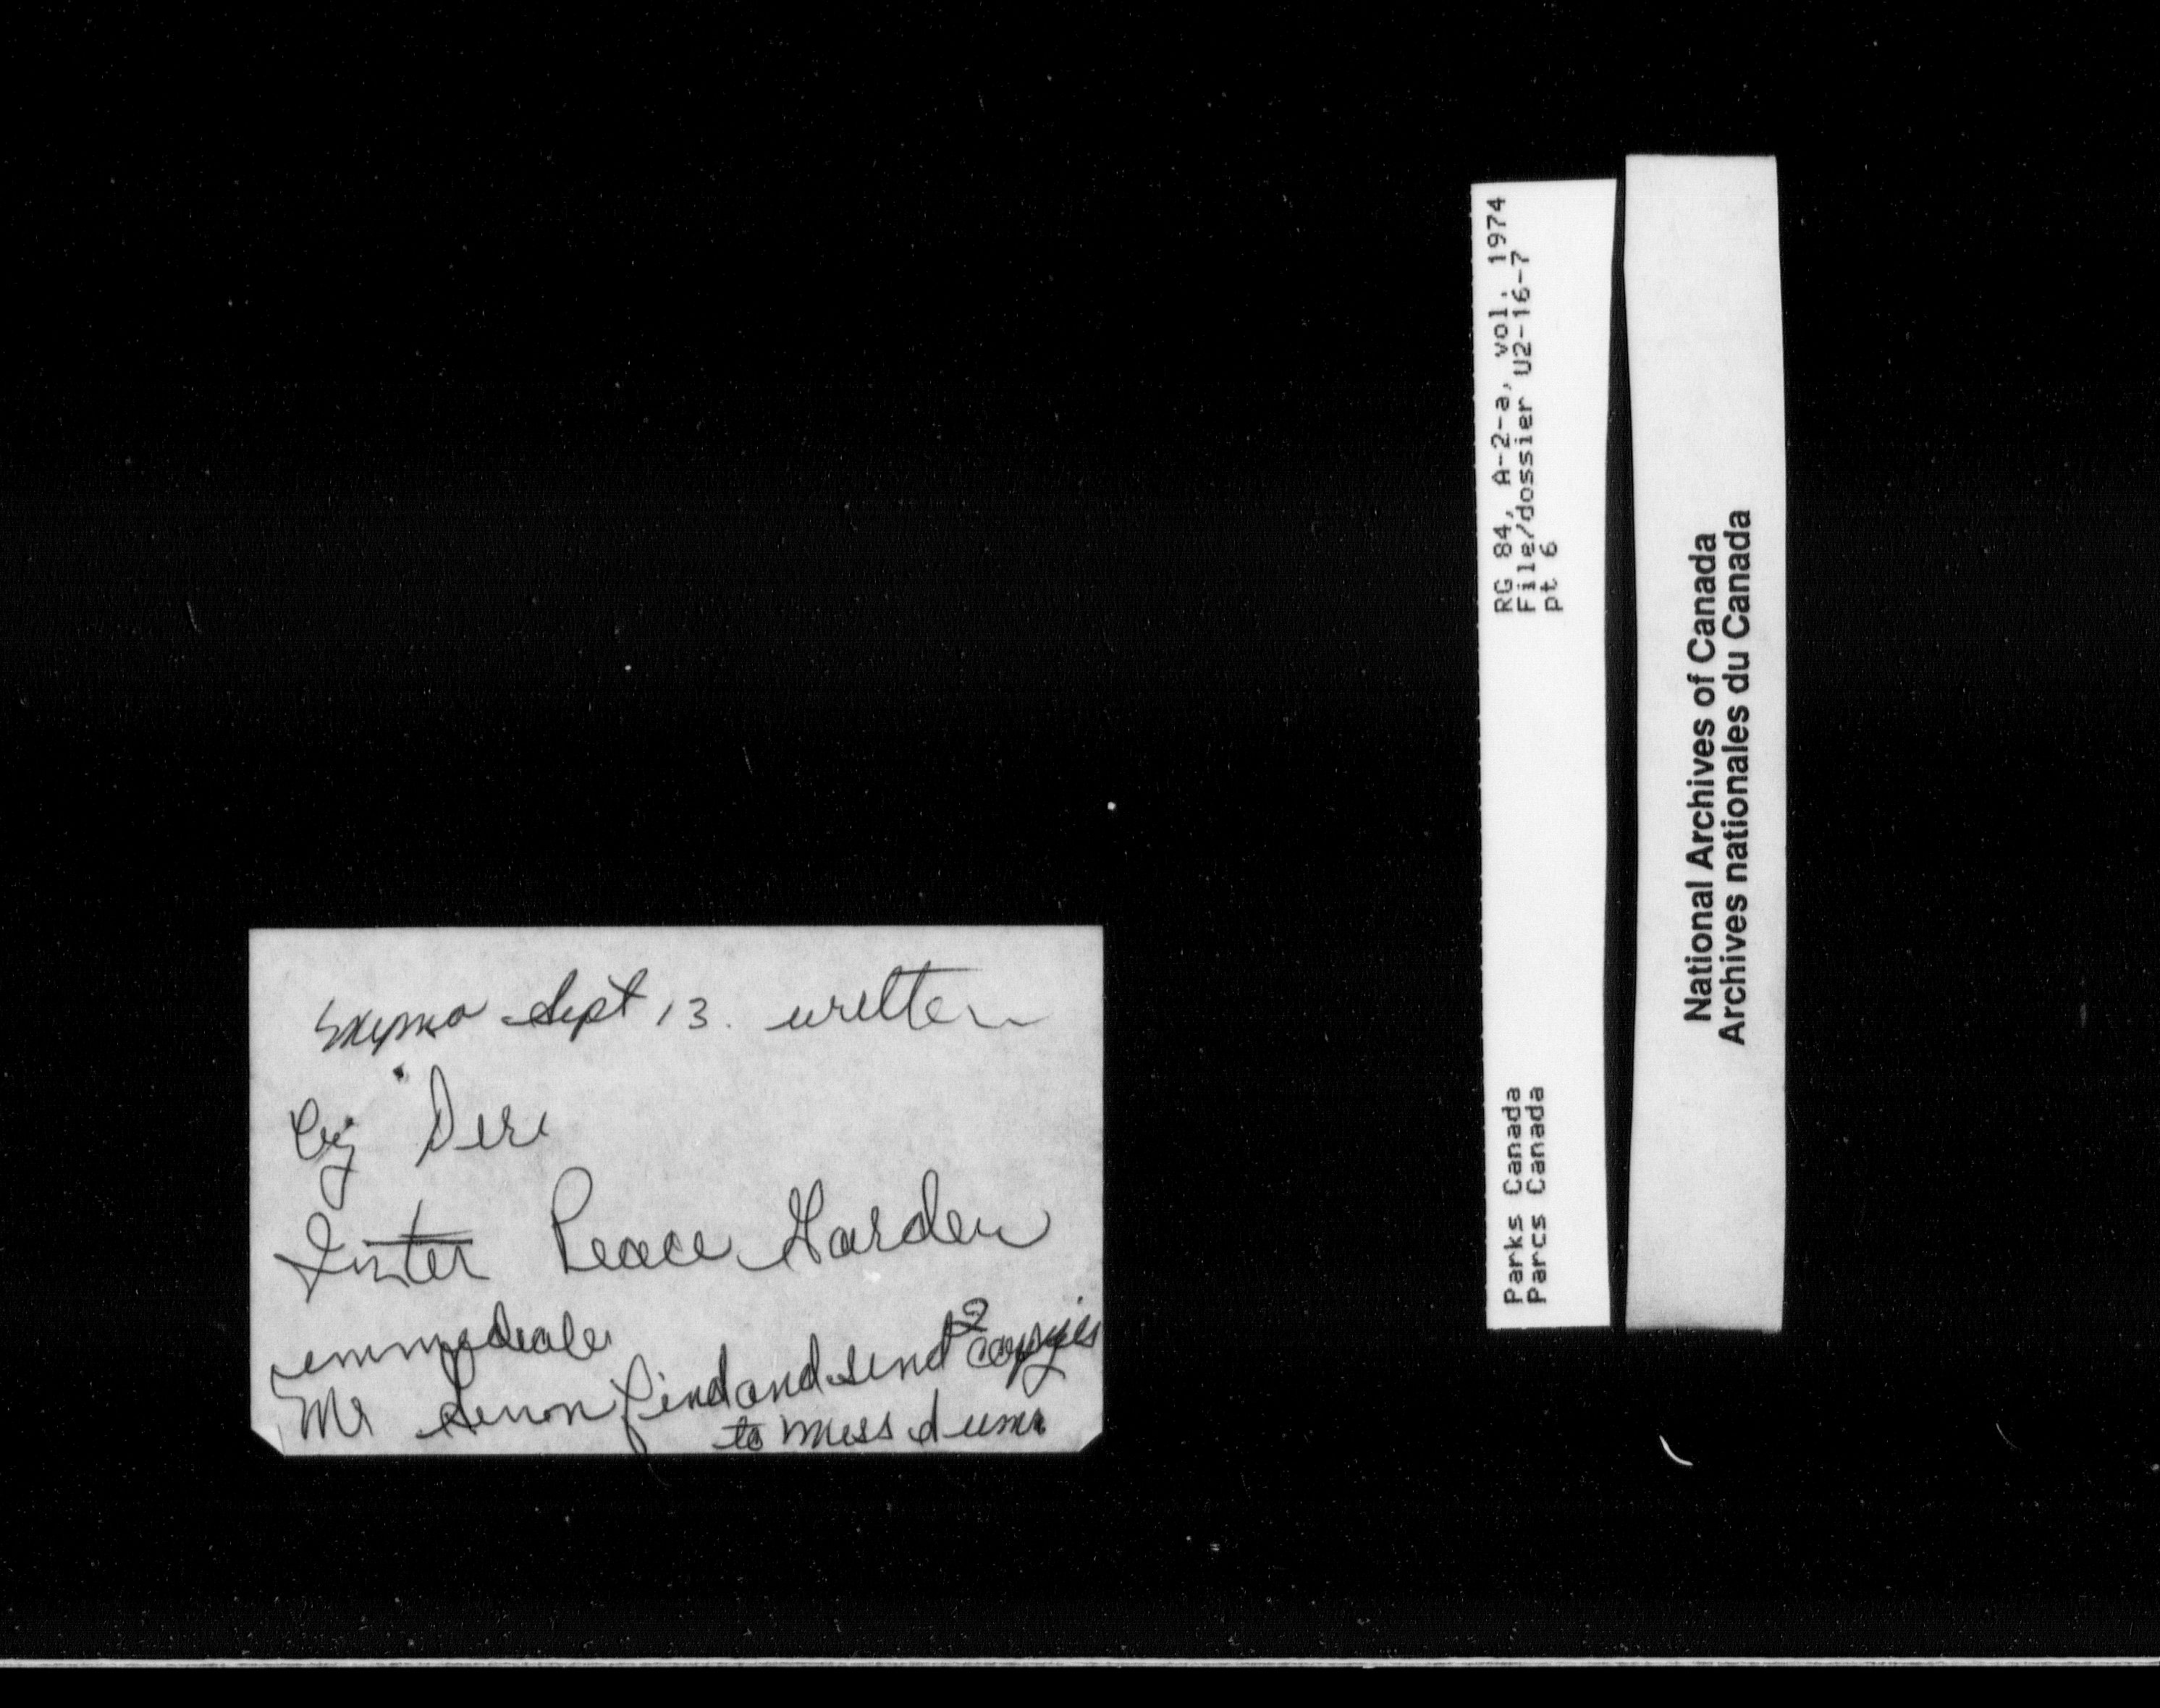 memo Sept 13. written
by Dire
Inter Peace Garden
immediate
Mr find and send 2 copyies
to Miss
RG 84, A-2-a, vol. 1974
File/dossier U2-16-7
pt 6
Parks Canada
Parcs Canada
National Archives of Canada
Archives nationales du Canada